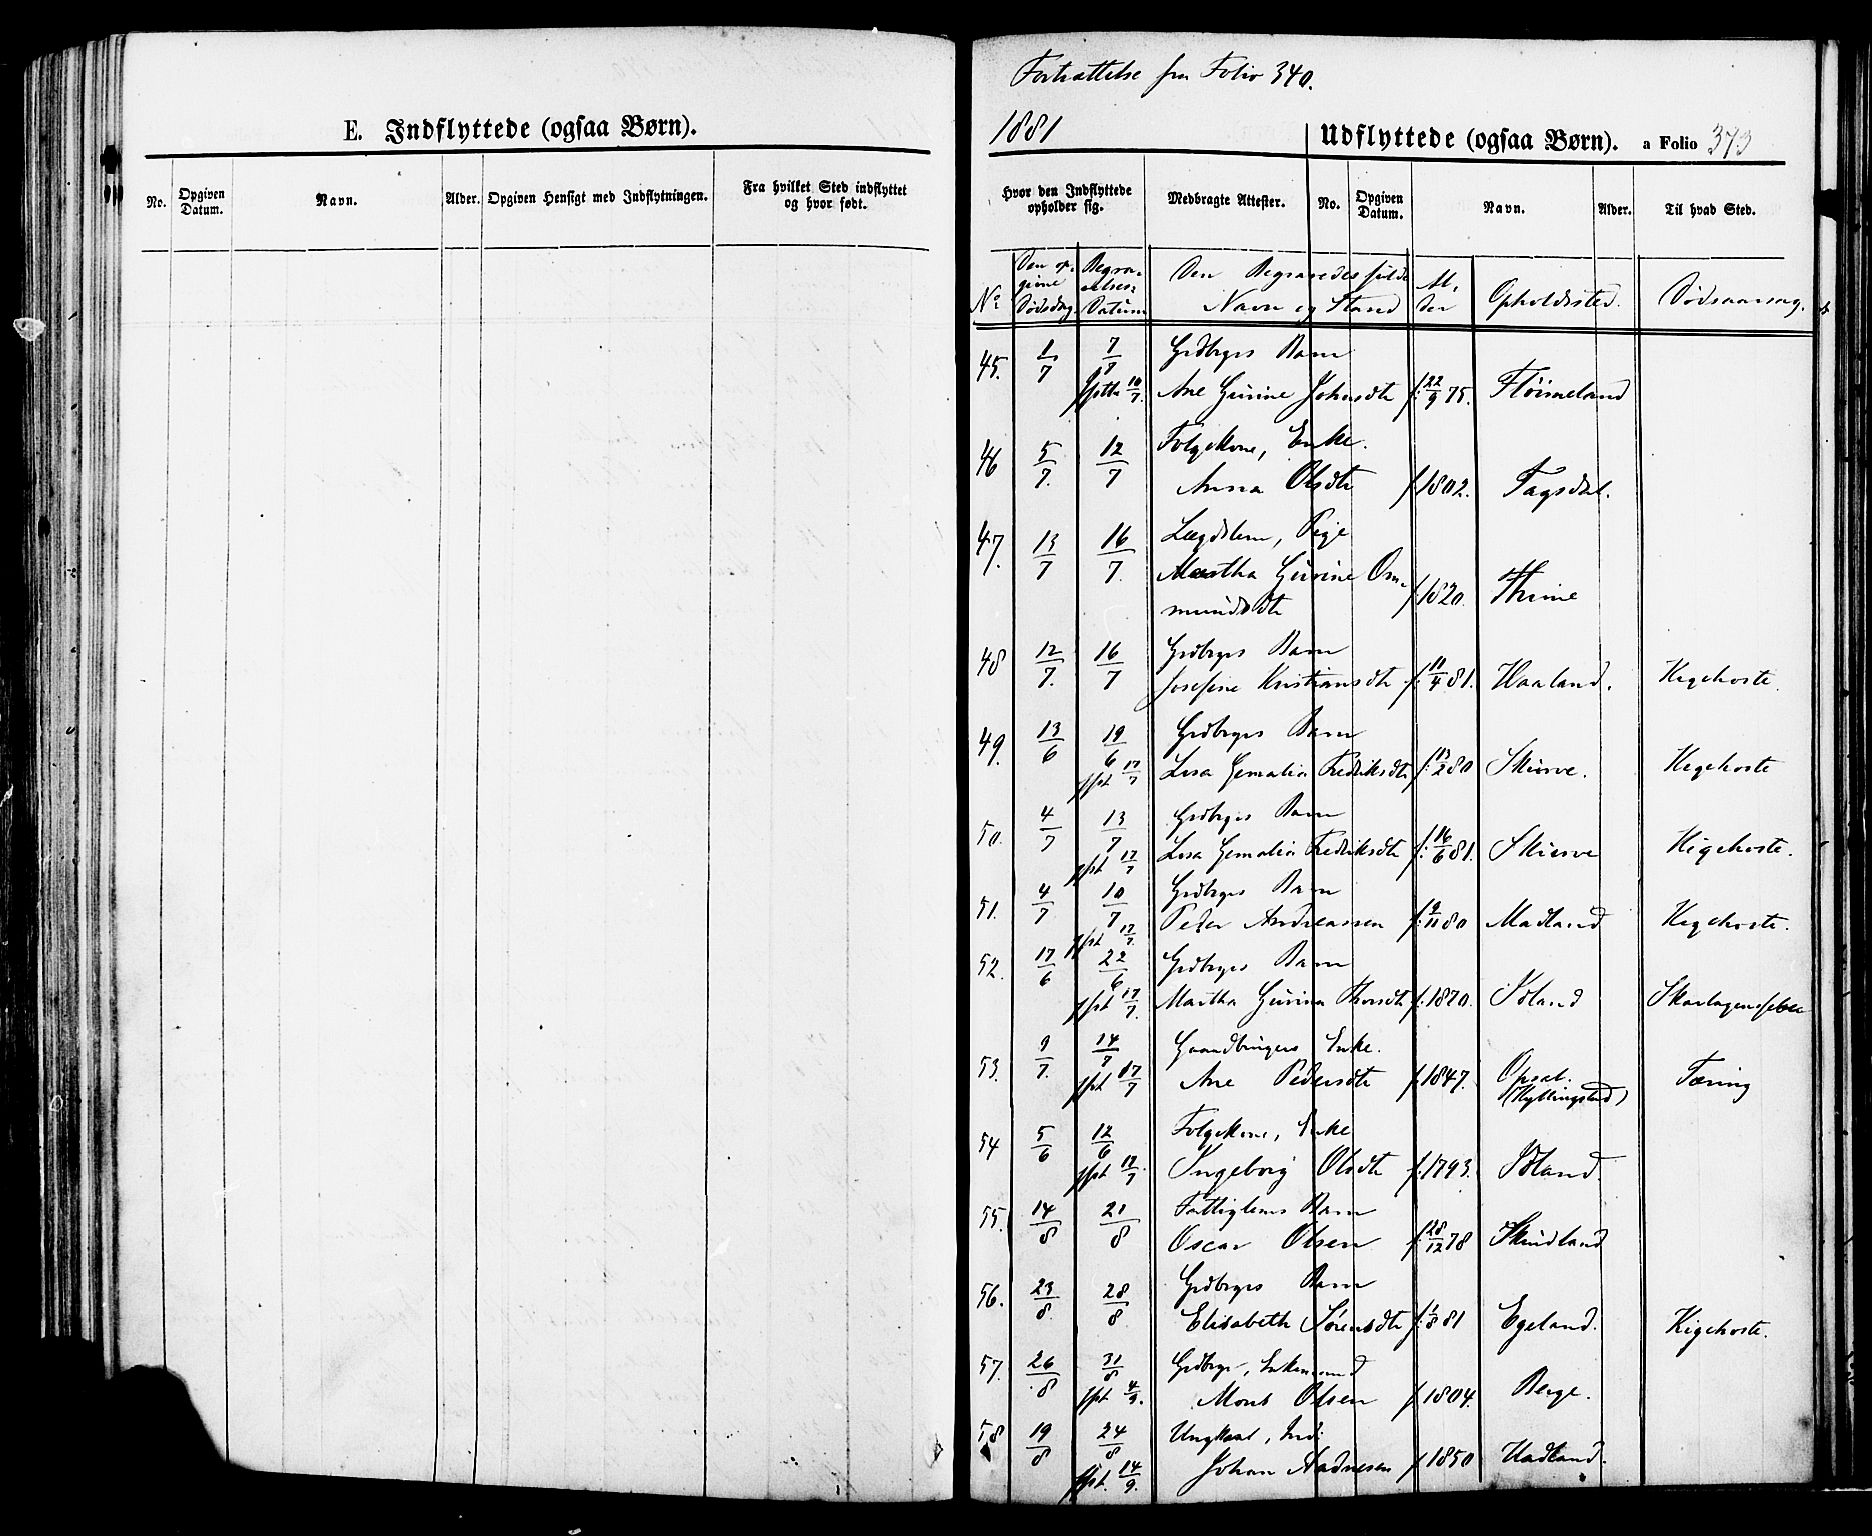 E. Indflyttede (ogsaa Børn).
No.
Opgiven Datum.
Navn.
Alder.
Opgiven Hensigt med Indflytningen.
Fra hvilket Sted indflyttet og hvor født.
Fortsættelse fra Folio 340.
1881
Udflyttede (ogsaa Børn). a Folio 373
Hvor den Indflyttede opholder sig.
Medbragte Attester.
No.
Opgiven Datum.
Navn.
Alder.
Til hvad Sted.
No
Den opgivne Dødsdag
Begravelses Datum
Den Begravedes fulde Navn og Stand
Alder
Opholdssted.
Dødsaarsag.
45. 1/7 7/7 Grdbrgrs Barn
jfstk 10/7. Ane Gurine Johnsdtr f. 22/9 75. Fløismeland
46 5/7. 12/7 Folgekone, Enke.
Anna Olsdtr f. 1802. Tagsdal.
47. 13/7 16/7. Lægdslem, Pige
Martha Gurine Om-
mundsdtr f. 1820. Thime
48 12/7. 16/7 Grdbrgrs Barn
Josefine Kristiansdtr f. 11/4 81. Haaland. Kigehoste.
49. 13/6 19/6 Grdbrgrs Barn
jfst 17/7 Lisa Gemalia Fredriksdtr f. 13/2 80 Skurve. Kigehoste
50. 4/7 13/7 Grdbrgrs Barn
jfst 17/7 Lisa Gemalia Fredriksdtr f. 16/6 81. Skurve Kigehoste.
51. 4/7 10/7 Grdbrgrs Barn
jfst 17/7. Peder Andreassen f. 9/11 80 Madland Kigehoste.
52. 17/6 22/6 Grdbrgrs Barn
jfst 17/7. Martha Gurina Thorsdtr f. 1870. Øland Skarlagensfeber
53. 9/7. 14/7 Gaardbrugers Enke.
jfst 17/7 Ane Pedersdtr f. 1847. Opsal. Tæring
(Kyllingstad)
54 5/6 12/6 Folgekone, Enke
jfst 17/7. Ingeborg Olsdtr f. 1793. Øland.
55. 14/8 21/8 Fattiglems Barn
Oscar Olsen f. 28/12 78 Skurdland
56. 23/8. 28/8. Grdbrgrs Barn
Elisabeth Sørensdtr f. 1/8 81 Egeland. Kigehoste.
57. 26/8 31/8 Grdbrgr, Enkemand
jfst 4/9. Mons Olsen f. 1804. Berge.
58 19/8 24/8 Ungkarl, Ind:
jfst. 14/9. Johan Aadnesen f. 1850 Uadland.